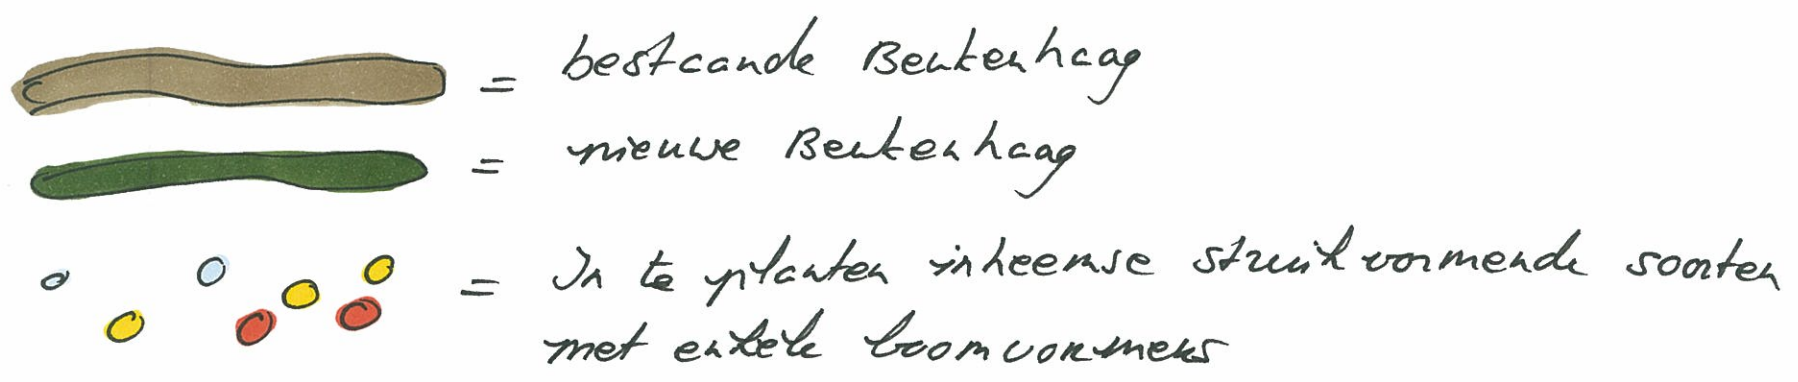 = bestaande Beukenhaag
= nieuwe Beukenhaag
= In te planten inheemse struikvormende soorten
met enkele boomvormers